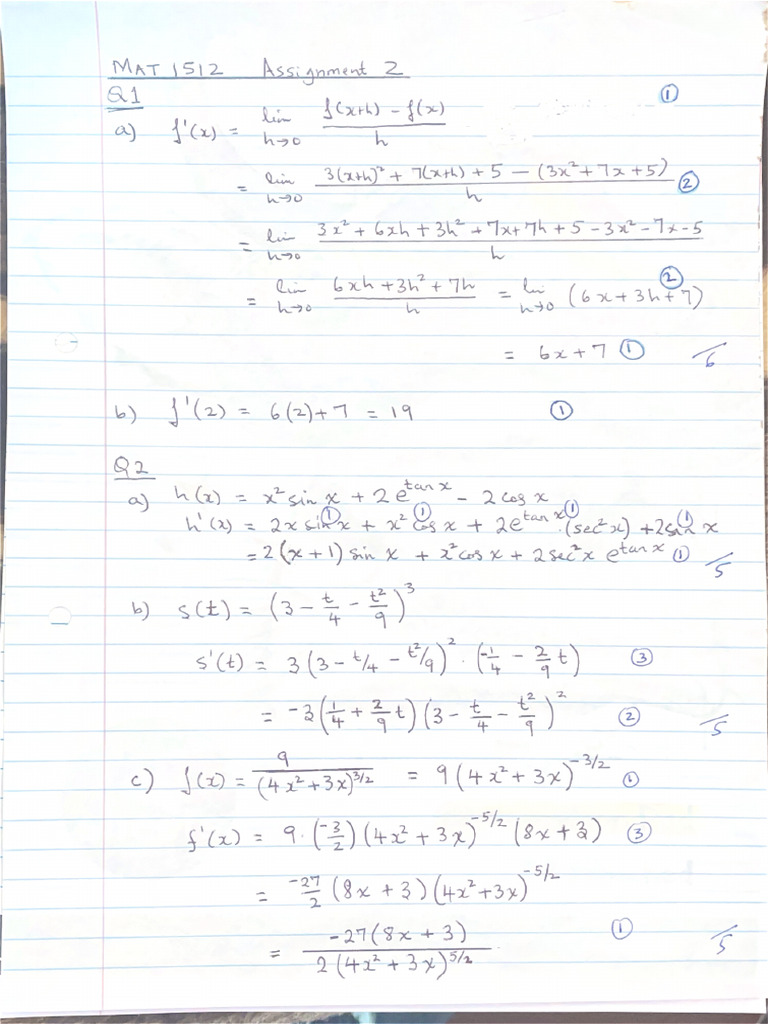 MAT 1512 Assignment 2
Q1 ①
a) f'(x) = lim h→0 (f(x+h) - f(x))/h
= lim h→0 (3(x+h)² + 7(x+h) + 5 - (3x² + 7x + 5))/h ②
= lim h→0 (3x² + 6xh + 3h² + 7x + 7h + 5 - 3x² - 7x - 5)/h
= lim h→0 (6xh + 3h² + 7h)/h = lim h→0 (6x + 3h + 7) ②
= 6x + 7 ① /6
b) f'(2) = 6(2) + 7 = 19 ①
Q2
a) h(x) = x² sin x + 2e^(tan x) - 2 cos x
h'(x) = 2x sin x ① + x² cos x ① + 2e^(tan x) · (sec² x) ① + 2 sin x ①
= 2(x + 1) sin x + x² cos x + 2 sec² x e^(tan x) ① /5
b) s(t) = (3 - t/4 - t²/9)³
s'(t) = 3(3 - t/4 - t²/9)² · (-1/4 - 2/9 t) ③
= -3(1/4 + 2/9 t)(3 - t/4 - t²/9)² ② /5
c) f(x) = 9/(4x² + 3x)^(3/2) = 9(4x² + 3x)^(-3/2) ①
f'(x) = 9 · (-3/2)(4x² + 3x)^(-5/2) (8x + 3) ③
= -27/2 (8x + 3)(4x² + 3x)^(-5/2)
= -27(8x + 3)/(2(4x² + 3x)^(5/2)) ① /5